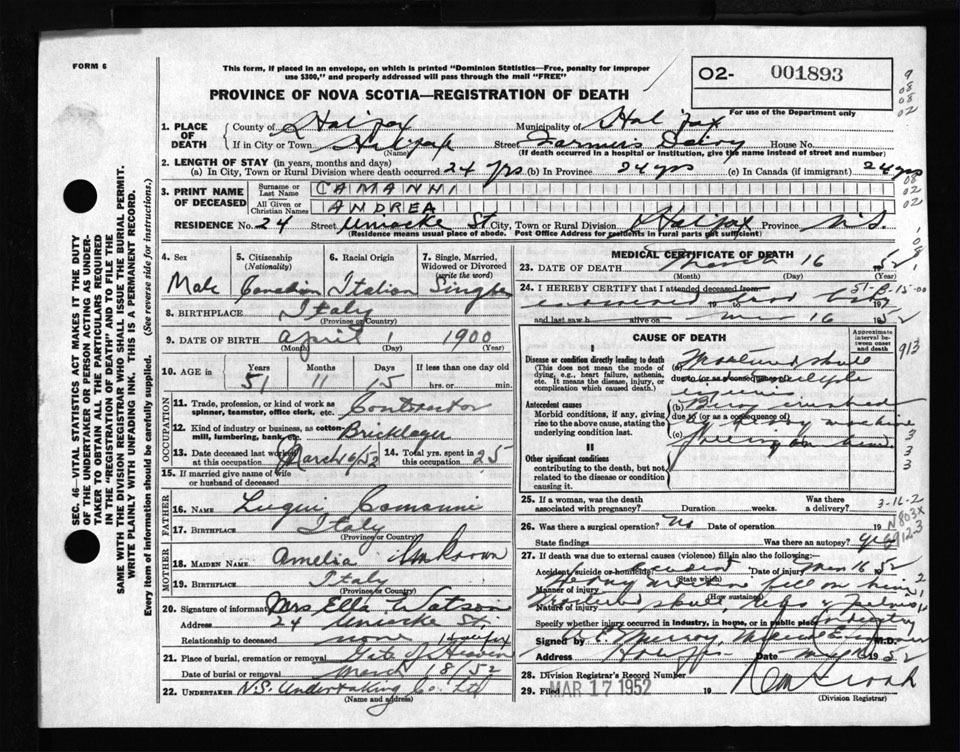 FORM 6
This form, if placed in an envelope, on which is printed "Dominion Statistics—Free, penalty for improper
use $300," and properly addressed will pass through the mail "FREE"
O2- 001893
For use of the Department only
PROVINCE OF NOVA SCOTIA—REGISTRATION OF DEATH
1. PLACE OF DEATH
County of Halifax Municipality of Halifax
If in City or Town Halifax (Name) Street Farmers Dairy House No.
(If death occurred in a hospital or institution, give the name instead of street and number)
2. LENGTH OF STAY (in years, months and days)
(a) In City, Town or Rural Division where death occurred 24 yrs (b) In Province 24 yrs (c) In Canada (if immigrant) 24 yrs
3. PRINT NAME OF DECEASED
Surname or Last Name CAMANNI
All Given or Christian Names ANDREA
RESIDENCE No. 24 Street Uniacke St City, Town or Rural Division Halifax Province N.S.
(Residence means usual place of abode. Post Office Address for residents in rural parts not sufficient)
4. Sex Male
5. Citizenship (Nationality) Canadian
6. Racial Origin Italian
7. Single, Married, Widowed or Divorced (write the word) Single
8. BIRTHPLACE Italy
(Province or Country)
9. DATE OF BIRTH April 1 1900
(Month) (Day) (Year)
10. AGE in Years 51 Months 11 Days 15 If less than one day old hrs. or min.
OCCUPATION
11. Trade, profession, or kind of work as spinner, teamster, office clerk, etc. Contractor
12. Kind of industry or business, as cotton mill, lumbering, bank, etc. Bricklayer
13. Date deceased last worked at this occupation March 16/52
14. Total yrs. spent in this occupation 25
15. If married give name of wife or husband of deceased
FATHER
16. Name Luigi Camanni
17. Birthplace Italy
(Province or Country)
MOTHER
18. MAIDEN NAME Amelia Unknown
19. BIRTHPLACE Italy
(Province or Country)
20. Signature of informant Mrs Ella Watson
Address 24 Uniacke St. Halifax
Relationship to deceased none
21. Place of burial, cremation or removal Gate of Heaven
Date of burial or removal March 18/52
22. UNDERTAKER N.S. Undertaking Co. Ltd
(Name and address)
MEDICAL CERTIFICATE OF DEATH
23. DATE OF DEATH March 16 52
(Month) (Day) (Year)
24. I HEREBY CERTIFY that I attended deceased from
19 to 19
and last saw h alive on 16 1952
CAUSE OF DEATH
Approximate interval between onset and death
I
Disease or condition directly leading to death
(This does not mean the mode of dying, e.g., heart failure, asthenia, etc. It means the disease, injury, or complication which caused death.)
(a) skull
due to (or as a consequence of)
Antecedent causes
Morbid conditions, if any, giving rise to the above cause, stating the underlying condition last.
(b) crushed
due to (or as a consequence of)
by heavy machine
(c) falling on him
II
Other significant conditions
contributing to the death, but not related to the disease or condition causing it.
25. If a woman, was the death associated with pregnancy? Duration weeks. Was there a delivery?
26. Was there surgical operation? No Date of operation 19
State findings Was there an autopsy? yes
27. If death was due to external causes (violence) fill in also the following:
Accident, suicide or homicide Accident Date of injury 16 1952
(State which)
Manner of injury Heavy machine fell on him
(How sustained)
Nature of injury skull, ribs & Pelvis
Specify whether injury occurred in industry, in home, or in public place Industry
Signed by M.D.
Address Halifax Date 1952
28. Division Registrar's Record Number
29. Filed MAR 17 1952 19
(Division Registrar)
SEC. 46—VITAL STATISTICS ACT MAKES IT THE DUTY
OF THE UNDERTAKER OR PERSON ACTING AS UNDER-
TAKER TO OBTAIN ALL THE PARTICULARS REQUIRED
IN THE "REGISTRATION OF DEATH" AND TO FILE THE
SAME WITH THE DIVISION REGISTRAR WHO SHALL ISSUE THE BURIAL PERMIT.
WRITE PLAINLY WITH UNFADING INK. THIS IS A PERMANENT RECORD.
Every item of information should be carefully supplied. (See reverse side for instructions.)